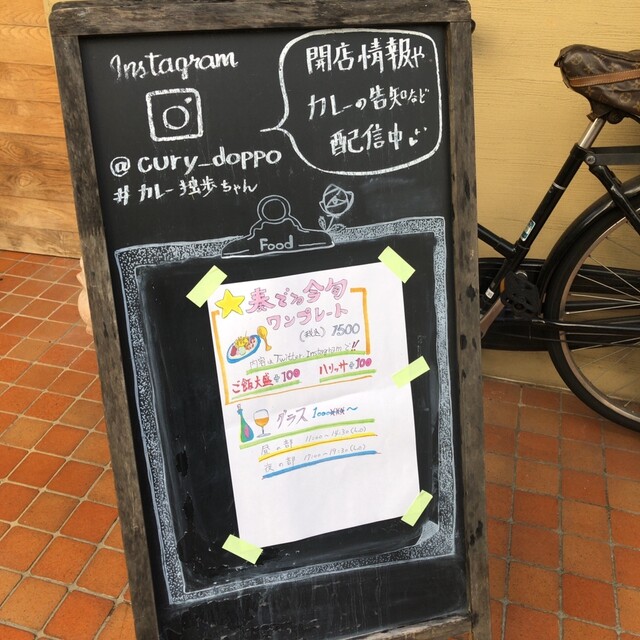 Instagram
@cury_doppo
#カレー独歩ちゃん
開店情報や
カレーの告知など
配信中
Food
奏でる今旬
ワンプレート
(税込) 1500
内容はTwitter, Instagramに!!
ご飯大盛+100 ハリッサ+100
グラス 1000~
昼の部 11:00~14:30(L.O)
夜の部 17:00~19:30(L.O)